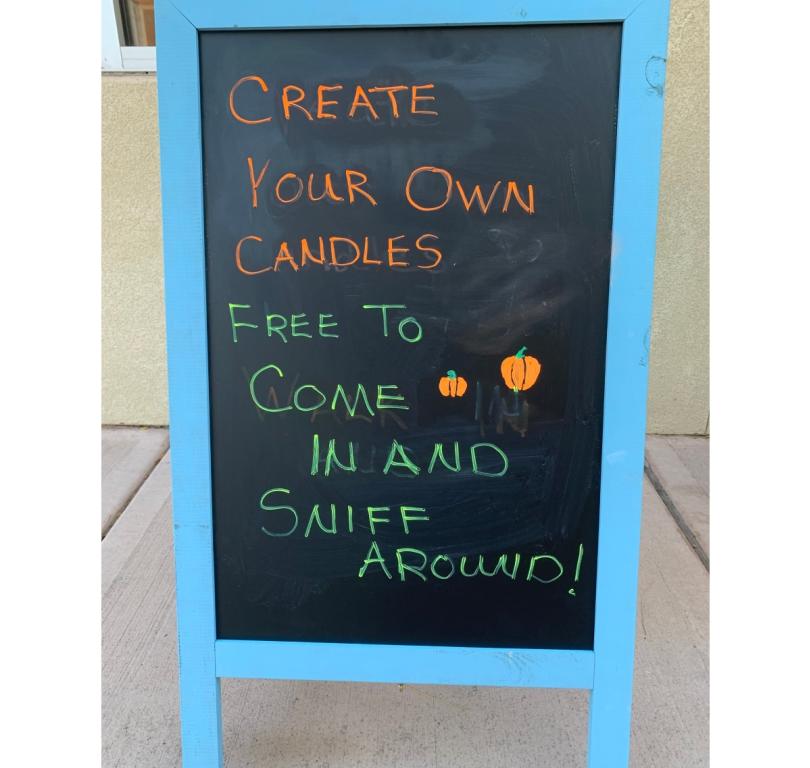 CREATE
YOUR OWN
CANDLES
FREE TO
COME
IN AND
SNIFF
AROUND!